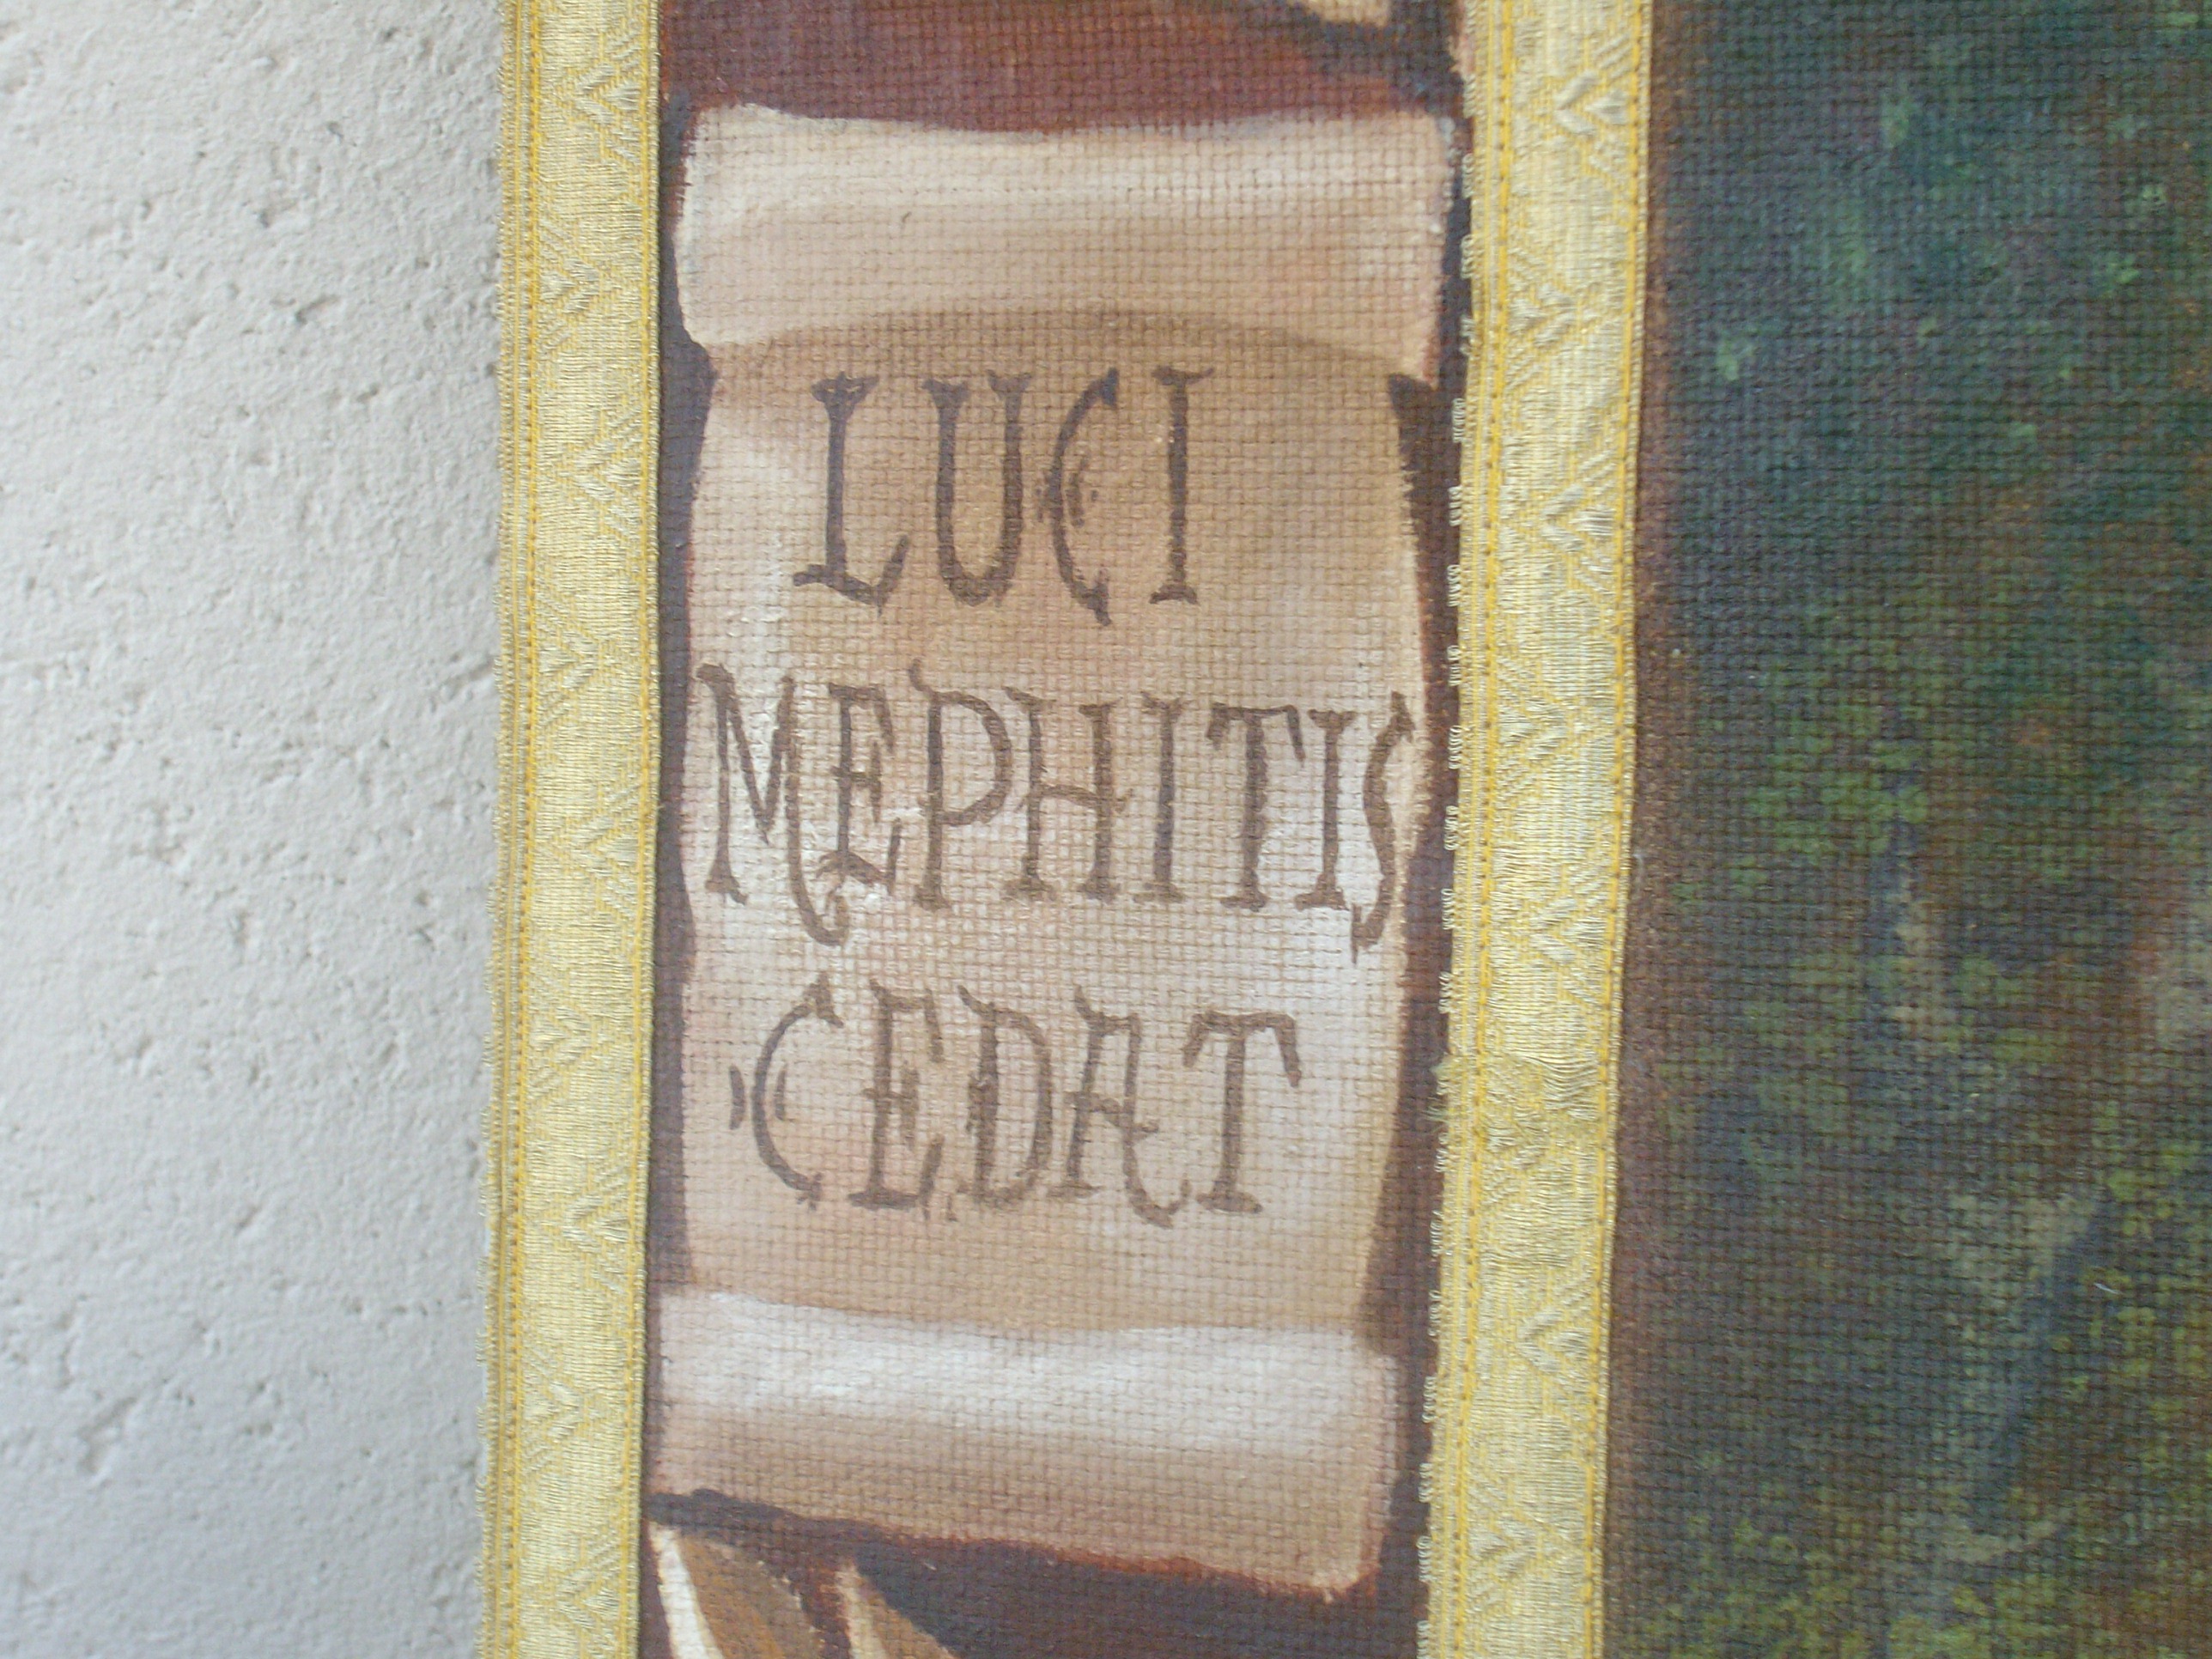 LUCI
MEPHITIS
CEDAT